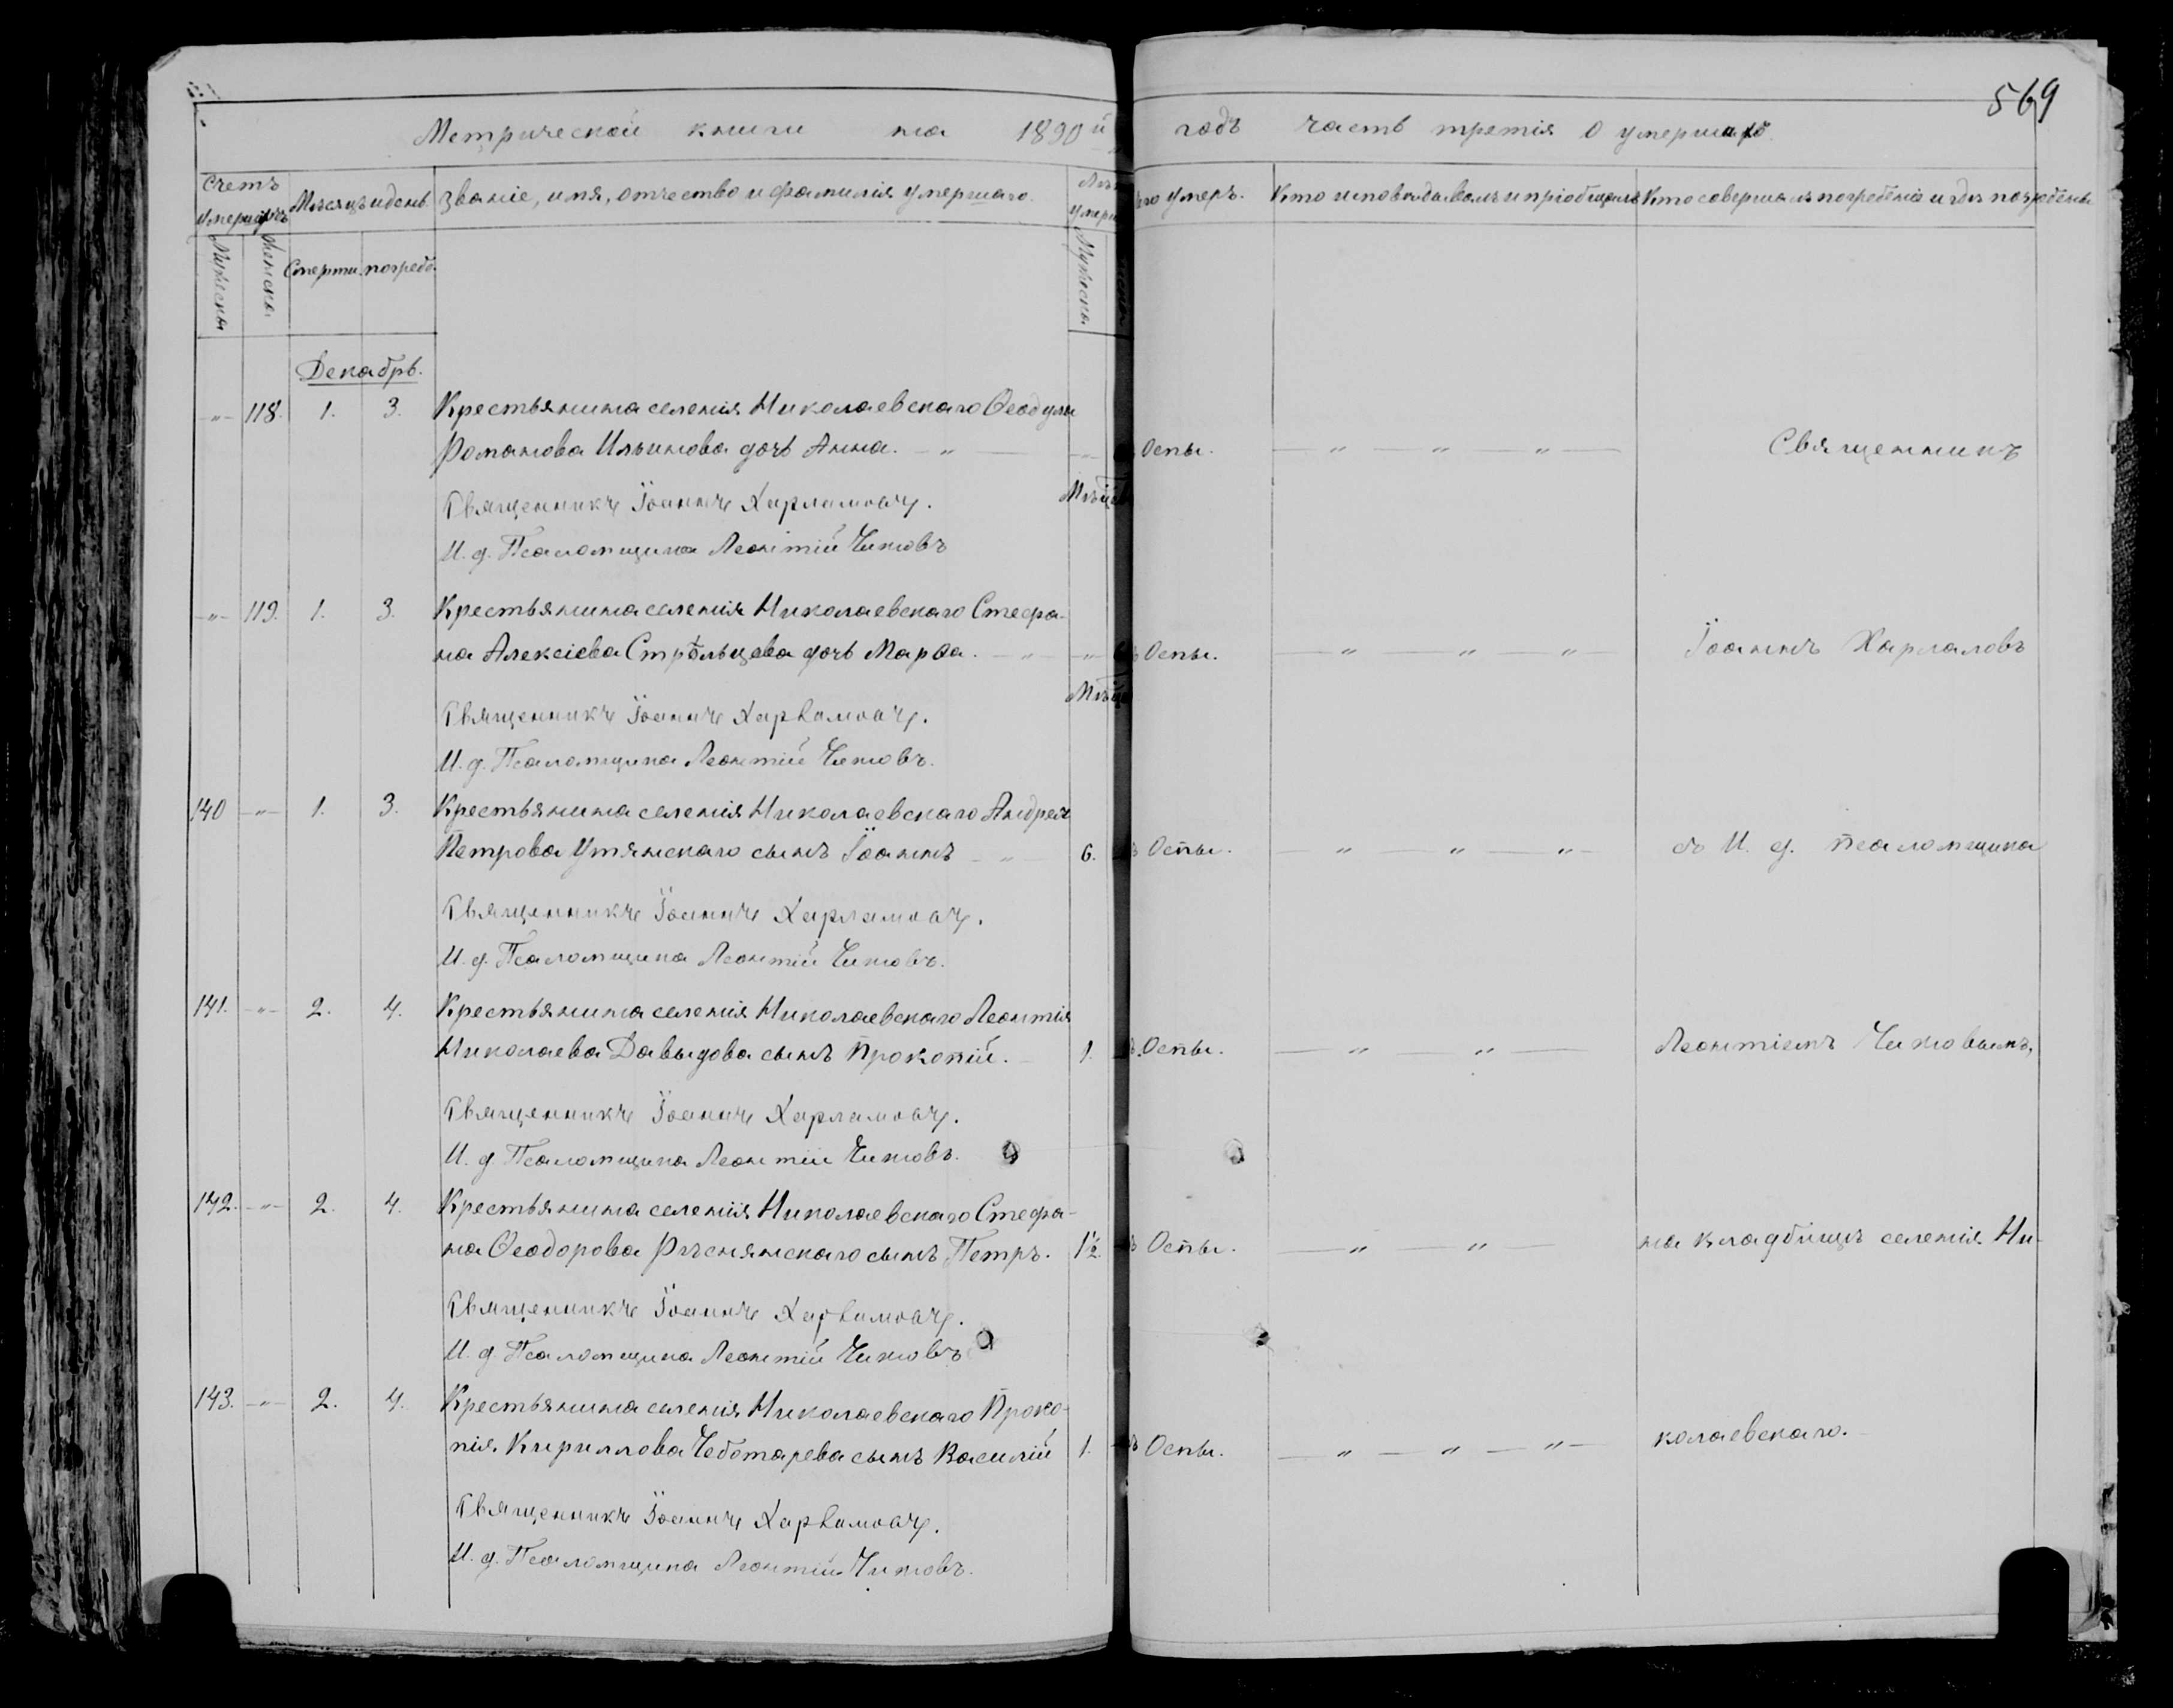 569
Метрической книги на 1890й годъ часть третія О умершихъ
Счетъ умершихъ Мѣсяцъ и день. Званіе, имя, отчество и фамилія умершаго. его умеръ. Кто исповѣдывалъ и пріобщалъ Кто совершалъ погребеніе и гдѣ погребены
Мужеска Женска Смерти. погребе. Мужеска
Декабрь.
-"- 118. 1. 3. Крестьянина селенія Николаевскаго Ѳеодула
Романова Ильинова дочь Анна. — " — Оспы. — " — " — " — Священникъ
Священникъ Іоаннъ Харламовъ.
И. д. Псаломщика Леонтій Чижовъ
-"- 119. 1. 3. Крестьянина селенія Николаевскаго Стефа-
на Алексіева Стрѣльцева дочь Марѳа. — " — -"- Оспы. — " — " — " — Іоаннъ Харламовъ
Священникъ Іоаннъ Харламовъ.
И. д. Псаломщика Леонтій Чижовъ.
140 -"- 1. 3. Крестьянина селенія Николаевскаго Андрея
Петрова Утянскаго сынъ Іоаннъ — " — 6. Оспы. — " — " — " — съ И. д. псаломщика
Священникъ Іоаннъ Харламовъ.
И. д. Псаломщика Леонтій Чижовъ.
141. -"- 2. 4. Крестьянина селенія Николаевскаго Леонтія
Николаева Давыдова сынъ Прокопій. — 1. Оспы. — " — " — Леонтіемъ Чижовымъ,
Священникъ Іоаннъ Харламовъ.
И. д. Псаломщика Леонтій Чижовъ.
142. -"- 2. 4. Крестьянина селенія Николаевскаго Стефа-
на Ѳеодорова Рѣснянскаго сынъ Петръ. 1½. Оспы. — " — " — на кладбищѣ селенія Ни-
Священникъ Іоаннъ Харламовъ.
И. д. Псаломщика Леонтій Чижовъ
143. -"- 2. 4. Крестьянина селенія Николаевскаго Проко-
пія Кириллова Чеботарева сынъ Василій 1. Оспы. — " — " — " — колаевскаго.
Священникъ Іоаннъ Харламовъ.
И. д. Псаломщика Леонтій Чижовъ.